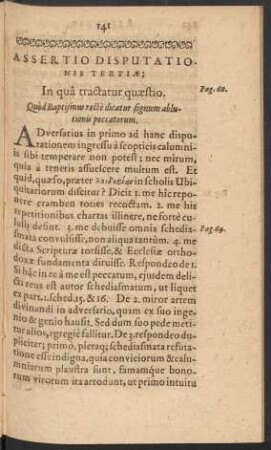 141
ASSERTIO DISPUTATIO-
NIS TERTIÆ;
In quâ tractatur quæstio.
Pag. 60.
Quòd Baptismus rectè dicatur signum ablu-
tionis peccatorum.
ADversarius in primo ad hanc dispu-
tationem ingressu à scopticis calum-
niis sibi temperare non potest; nec mirum,
quia à teneris assuescere multum est. Et
quid, quæso, præter in scholis Ubi-
quitariorum discitur? Dicit 1. me hîc repo-
nere cramben toties recoctam. 2. me his
repetitionibus chartas illinere, ne fortè cu-
culli desint. 3. me debuisse omnia schedia-
smata convulsisse, non aliqua tantùm. 4. me
Pag. 69.
dicta Scripturæ torsisse, & Ecclesiæ ortho-
doxæ fundamenta diruisse. Respondeo de 1.
Si hâc in re à me est peccatum, ejusdem deli-
cti reus est autor schediasmatum, ut liquet
ex part. 1. sched. 15. & 16. De 2. miror artem
divinandi in adversario, quam ex suo inge-
nio & genio hausit. Sed dum suo pede meti-
tur alios, egregiè fallitur. De 3. respondeo du-
pliciter; primò, pleraq; schediasmata refuta-
tione esse indigna, quia conviciorum & calu-
mniarum plaustra sunt, famamque bono-
rum virorum ita arrodunt, ut primo intuitu